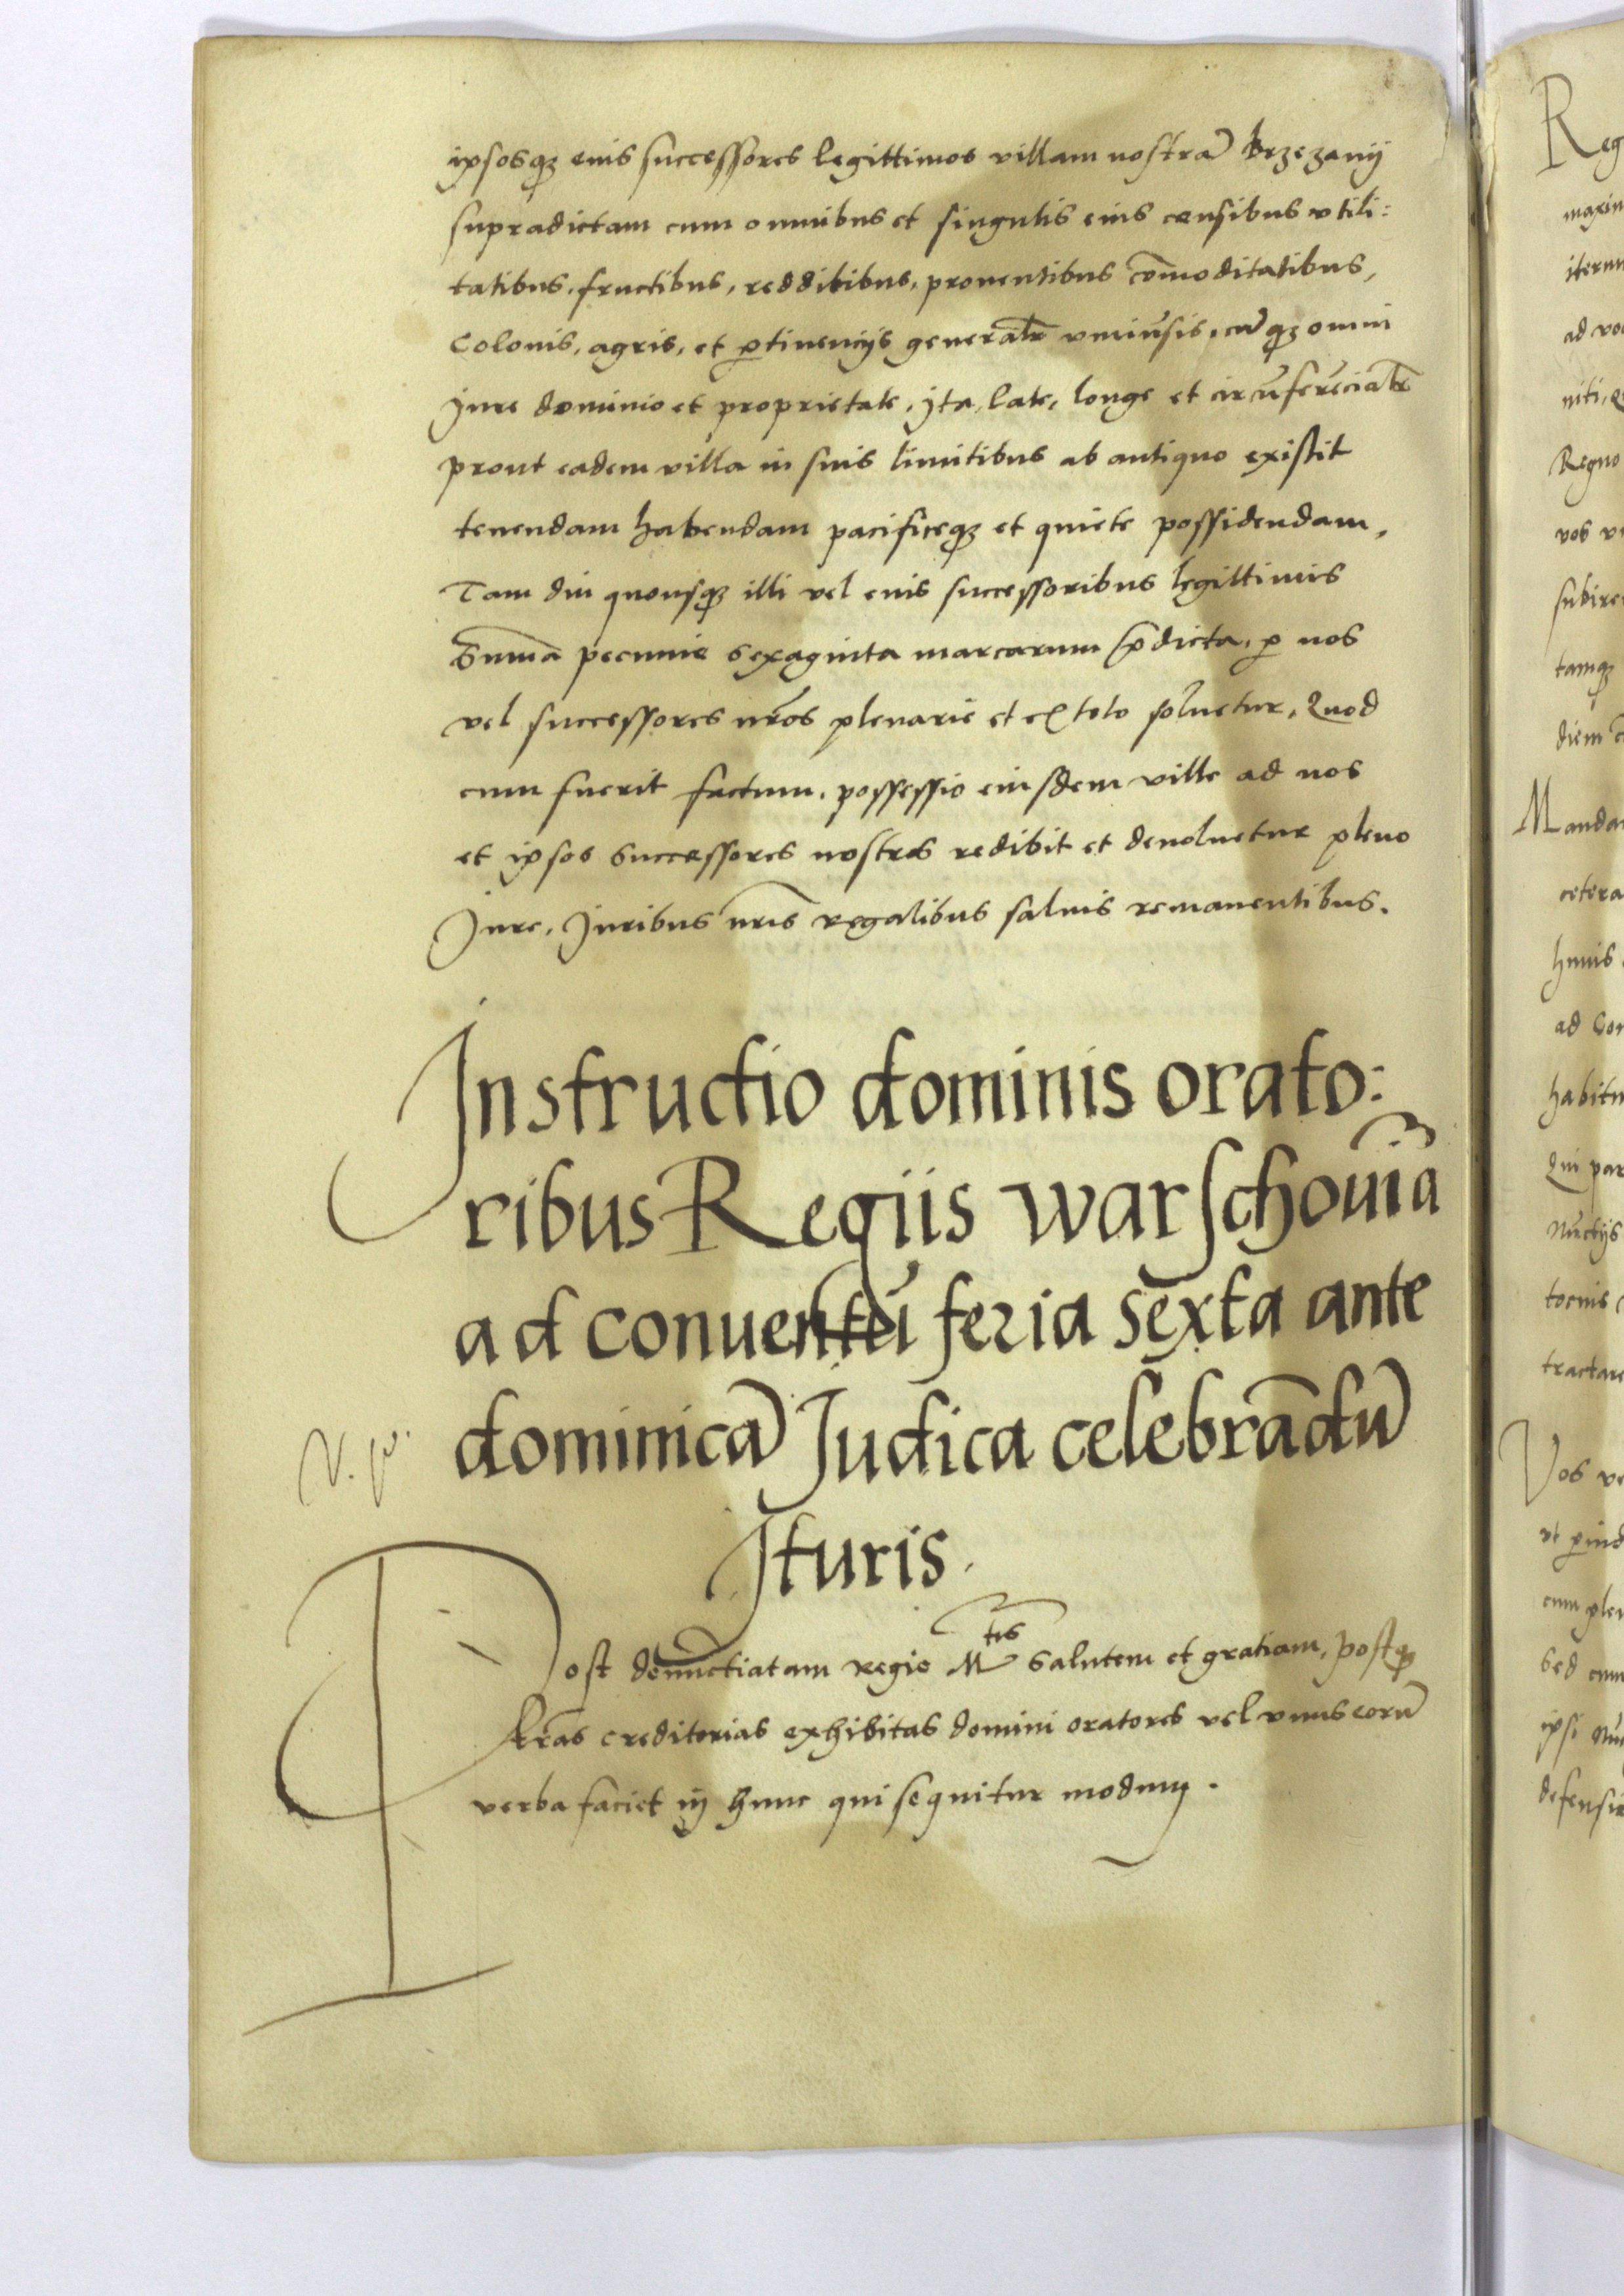 ipsosq₃ eius successores legittimos villam nostrã brzezanij
supradictam cum omnibus et singulis eius censibus vtili:
tatibus, fructibus, reddibibus, prouentibus cõmoditatibus,
Colonis, agris, et ꝑtinencijs generalr̃ vniũsis, cũq₃ omni
Jure dominio et proprietate, Jta, late, longe et circũferẽcialr̃
prout eadem villa in suis limitibus ab antiquo existit
tenendam habendam pacificeq₃ et quiete possidendam,
Tam diu quousq₃ illi vel euis successoribus legittimis
Sum̃a pecunie sexaginta marcarum p̃dicta, ꝑ nos
vel successores nr̃os plenarie et ex toto soluetur, Quod
cum fuerit factum, possessio eiusdem ville ad nos
et ipsos Successores nostros redibit et deuoluetur pleno
Jure, Juribus nr̃is regalibus saluis remanentibus.
Instructio dominis orato:
ribus Regiis warschouiã
ad conuentũ feria sexta ante
dominicã Judica celebrãdũ
Jturis.
Post denũctiatam regie M^tis Salutem et gratiam, postq₃
lr̃as creditorias exhibitas domini oratores vel vnus eorũ
verba faciet in hunc qui sequitur modum.
Reg
maxim
iterum
niti,
Regno
subire
tamq₃
diem
Manda
cetera
huius
ad Con
habitu
Qui par
tractare
Vos ve
cum plen
Sed cum
ipsi